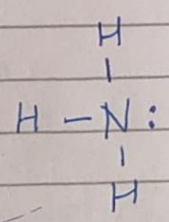 H
|
H – N :
|
H